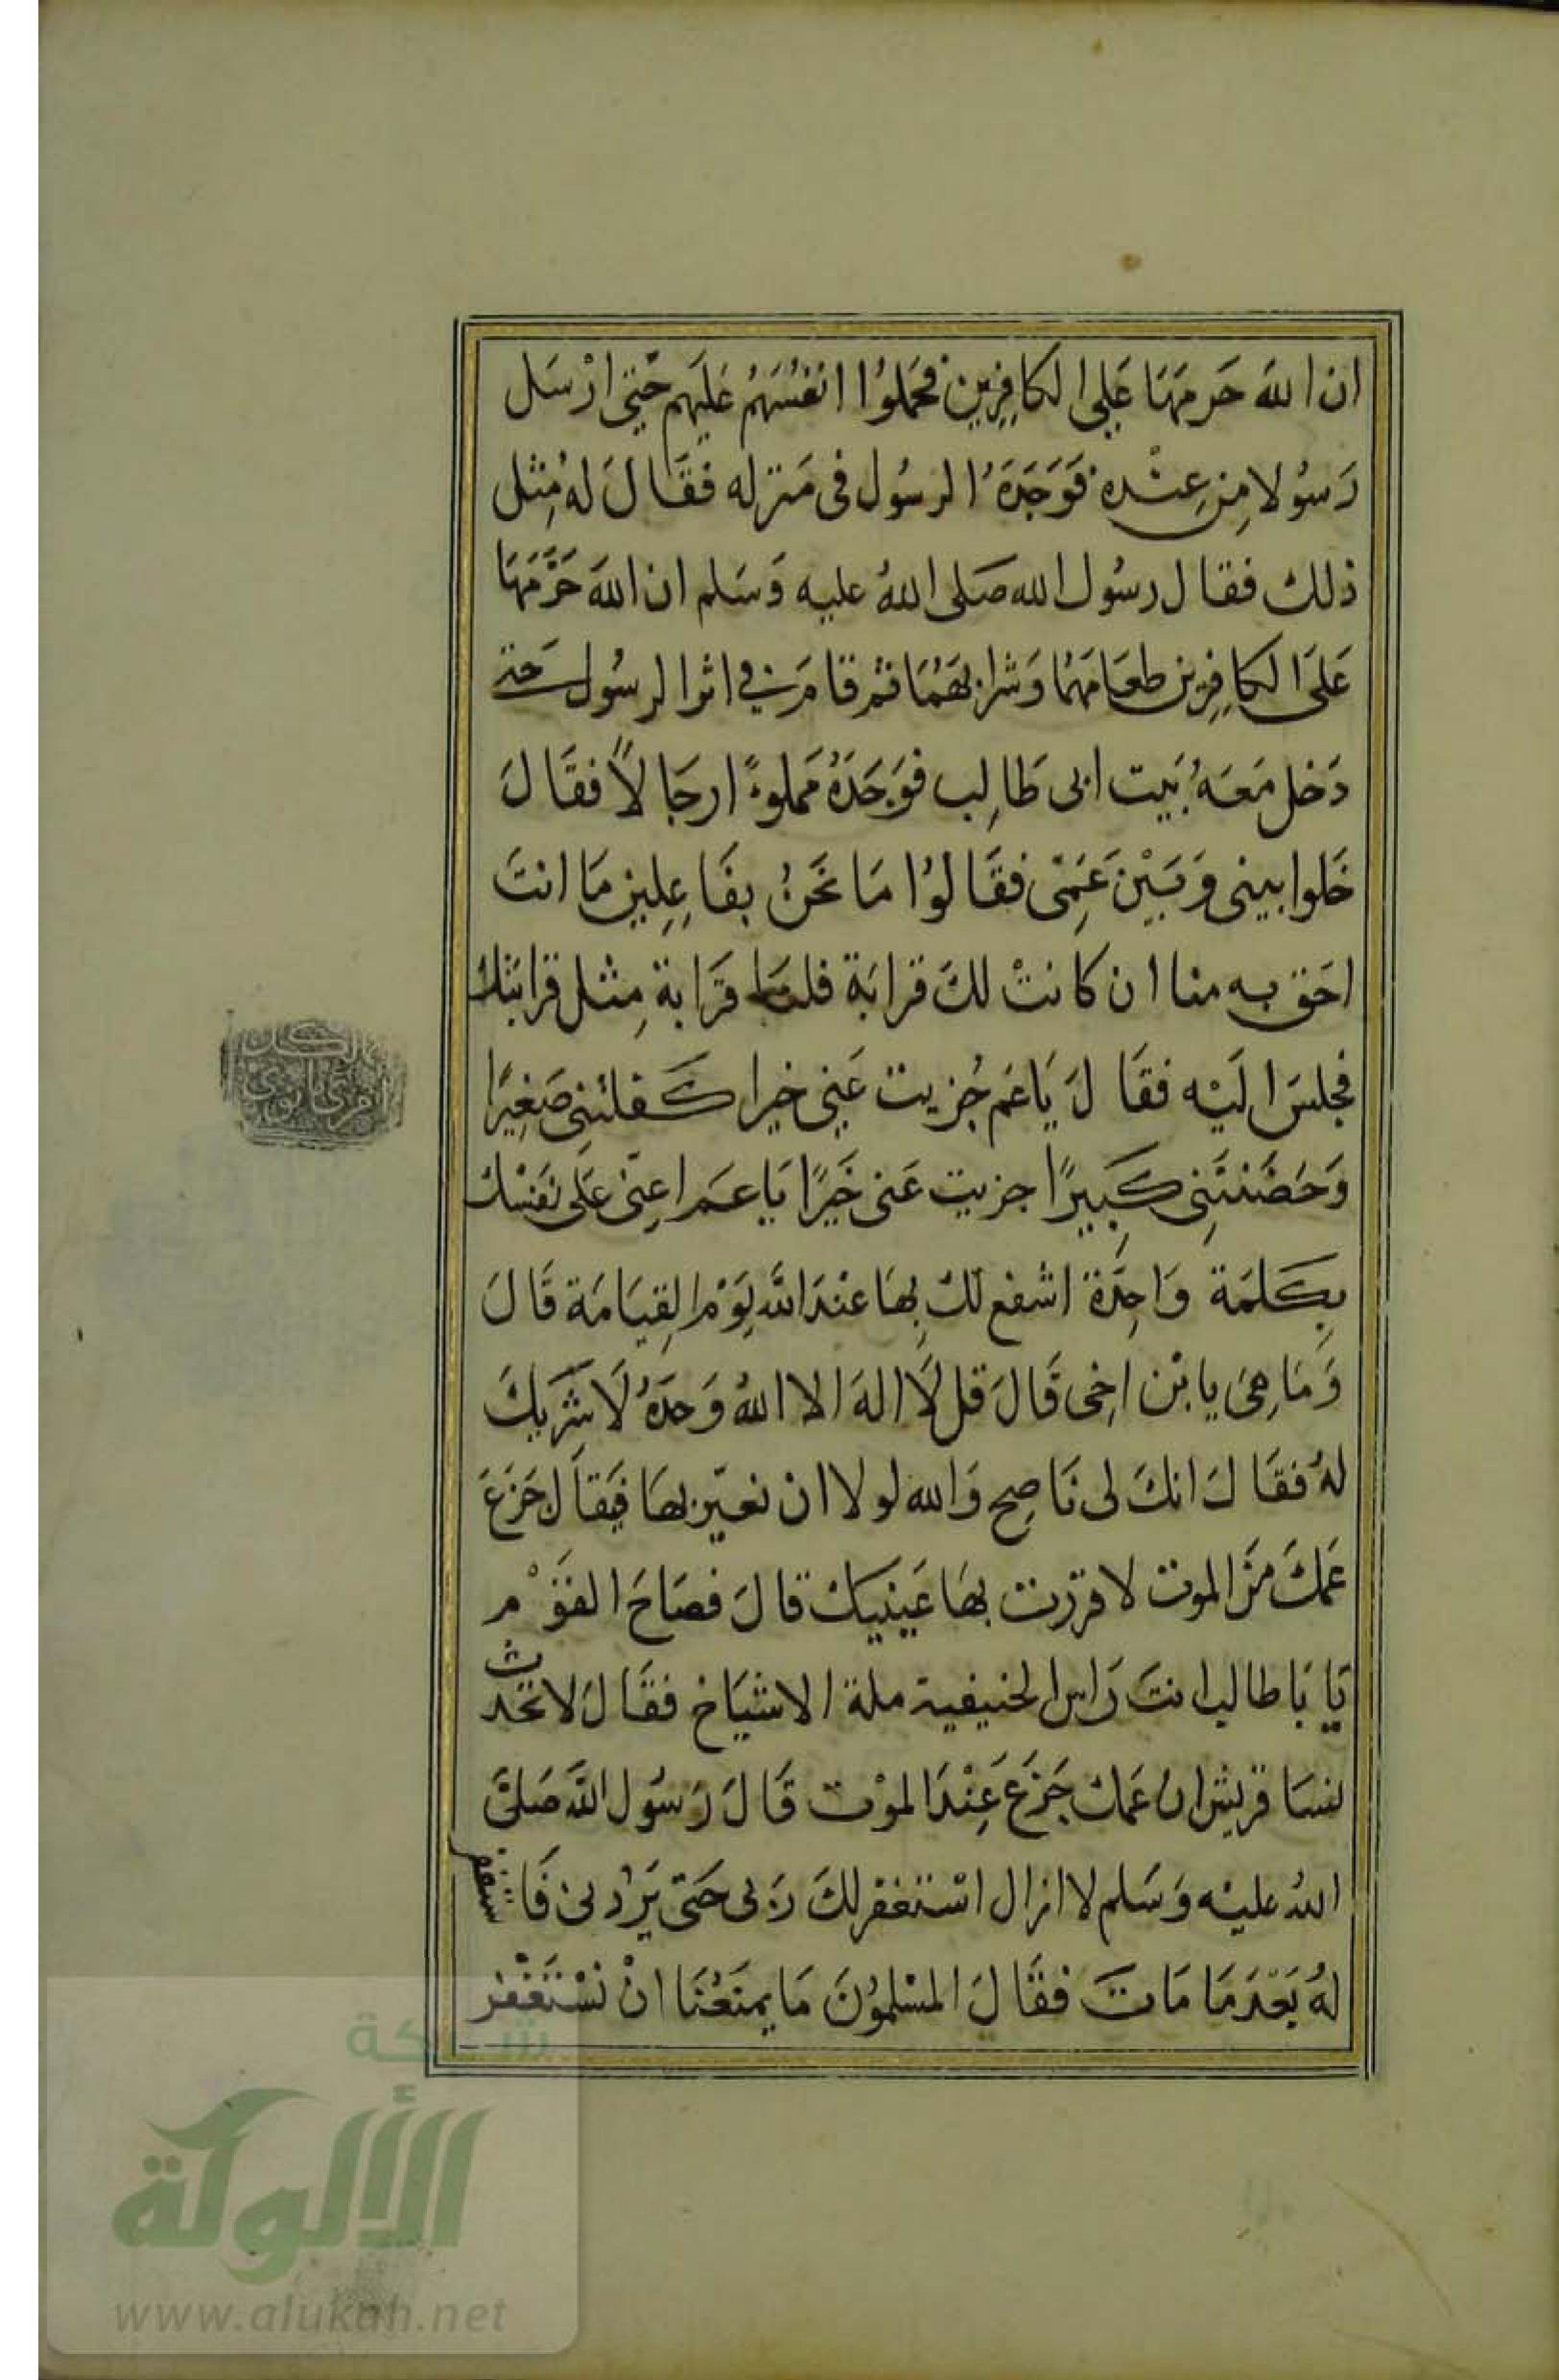 ان الله حَرمَهَا عَلى الكافِرِين فحَملُوا انفُسَهُم عَلَيهم حَتى ارْسَل
رَسُولا مِن عِنْده فَوَجَدَهُ الرسُول فى مَنزله فقَالَ لهُ مِثل
ذلك فقال رسُول الله صَلى اللهُ عليه وَسَلم ان اللهَ حَرَّمَهَا
عَلَى الكافِرِين طعَامَهُا وَشرابهَهُا ثم قامَ في اثر الرسُول حَتى
دَخل مَعَهُ بَيت ابى طَالِب فوَجَدَهُ مَملوءًا رجَالاً فقَالَ
خَلوا بينى وَبَيْنَ عَمِّى فقَالوُا مَا نَحَنُ بفَاعِلِين مَا انتَ
احَق به منا ان كانتْ لكَ قرابَة فلنا قَرَابة مِثل قرابَتك
فجلسَ الَيْه فقَالَ يَا عَم جُزيت عَنِى خيرا كَفلتنِى صَغِيرًا
وَحَضَنتَنِى كَبِيرًا جزيت عَنى خَيرًا يَا عَم اعِنّى عَلى نفسْك
بِكَلمَة وَاحِدَة اشفع لكَ بِهَا عنْدَ الله يَوْم القِيَامَة قَالَ
وَمَا هِىَ يا ابْن اخِى قَالَ قل لَا الهَ الا اللهُ وَحدَهُ لَا شَرِيكَ
لهُ فقَالَ انكَ لى نَاصِح وَالله لولا ان تعيّر بهَا فيَقَال جَزعَ
عَمكَ مَن الموت لاقررت بهَا عَينيك قالَ فصَاحَ القوْم
يَا بَا طالب انتَ رَاس الحنيفية ملة الاشيَاخ فقَالَ لا تحدث
نسَا قريش ان عَمكَ جَزعَ عِنْدَ الموْت قَالَ رَسوُل الله صَلىَّ
اللهُ عليْه وَسَلم لا ازال اسْتغفر لكَ رَبى حَتى يَرُدنى فَاستغفر
لهُ بَعْدَ مَا مَاتَ فقَالَ المسْلموُنَ مَا يمنَعُنَا انْ نسْتَغفْر
شبكة
الألوكة
www.alukah.net